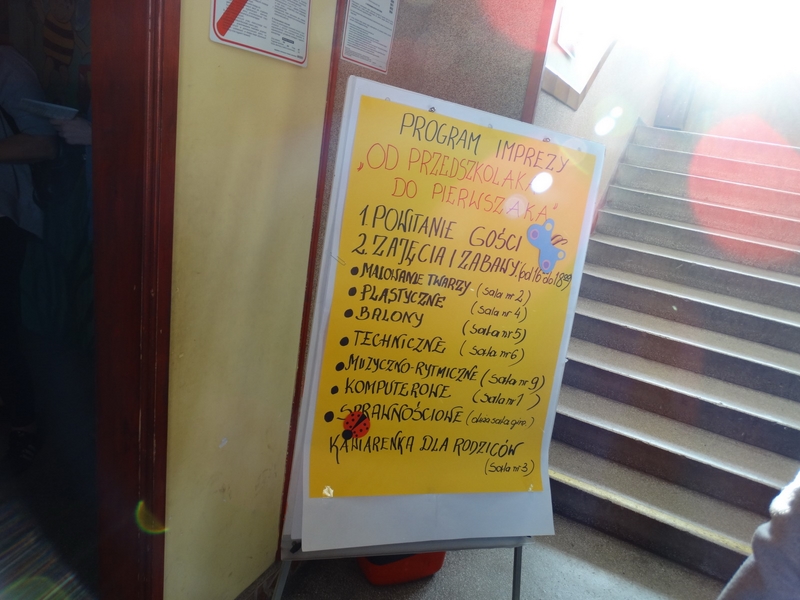 PROGRAM IMPREZY
„OD PRZEDSZKOLAKA
DO PIERWSZAKA"
1. POWITANIE GOŚCI
2. ZAJĘCIA I ZABAWY (od 16 do 18⁰⁰)
• MALOWANIE TWARZY - (sala nr 2)
• PLASTYCZNE (sala nr 4)
• BALONY (sala nr 5)
• TECHNICZNE (sala nr 6)
• MUZYCZNO-RYTMICZNE (sala nr 9)
• KOMPUTEROWE (sala nr 1)
• SPRAWNOŚCIOWE (duża sala gim.)
KAWIARENKA DLA RODZICÓW
(sala nr 3)